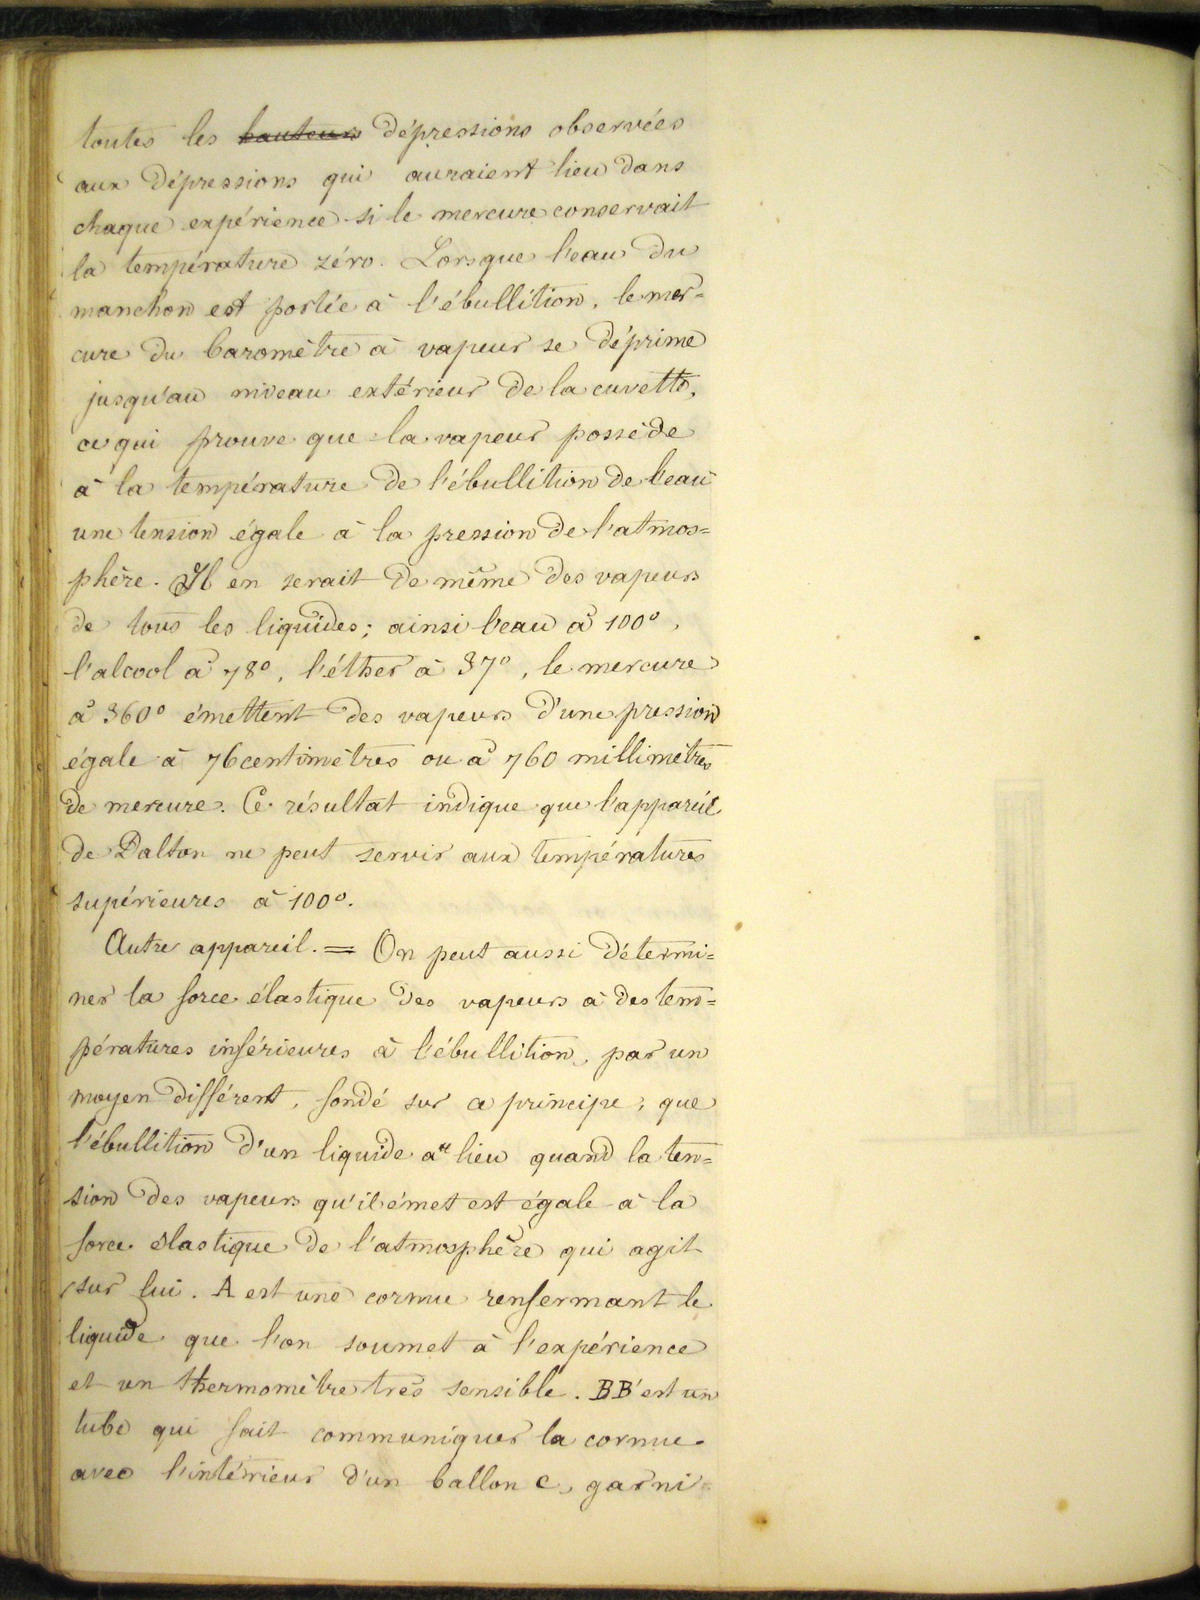 toutes les hauteurs dépressions observées
aux dépressions qui auraient lieu dans
chaque expérience si le mercure conservait
la température zéro. Lorsque l'eau du
manchon est portée à l'ébullition, le mer=
cure du baromètre à vapeur se déprime
jusqu'au niveau extérieur de la cuvette,
ce qui prouve que la vapeur possède
à la température de l'ébullition de l'eau
une tension égale à la pression de l'atmos=
phère. Il en serait de même des vapeurs
de tous les liquides; ainsi l'eau à 100°,
l'alcool à 78°, l'éther à 37°, le mercure
à 360° émettent des vapeurs d'une pression
égale à 76 centimètres ou à 760 millimètres
de mercure. Ce résultat indique que l'appareil
de Dalton ne peut servir aux températures
supérieures à 100°.
Autre appareil. = On peut aussi détermi=
ner la force élastique des vapeurs à des tem=
pératures inférieures à l'ébullition, par un
moyen différent, fondé sur ce principe; que
l'ébullition d'un liquide a lieu quand la ten=
sion des vapeurs qu'il émet est égale à la
force élastique de l'atmosphère qui agit
sur lui. A est une cornue renfermant le
liquide que l'on soumet à l'expérience
et un thermomètre très sensible. BB' est un
tube qui fait communiquer la cornue
avec l'intérieur d'un ballon C, garni